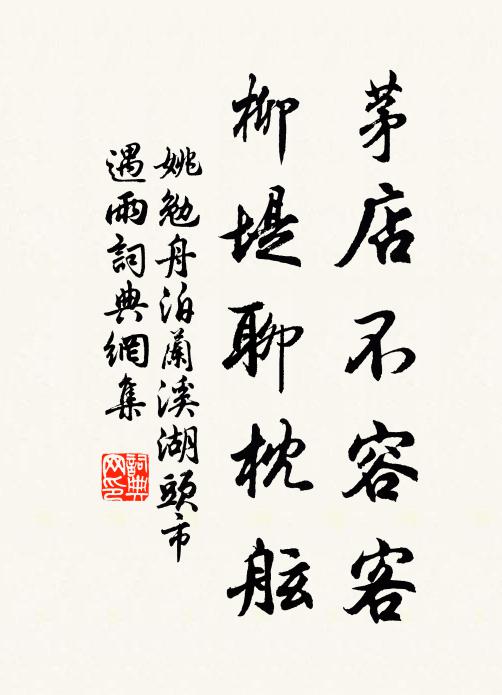 茅店不容客
柳堤聊枕舷
姚勉舟泊蘭溪湖頭市
遇雨詞典網集
詞典
网印